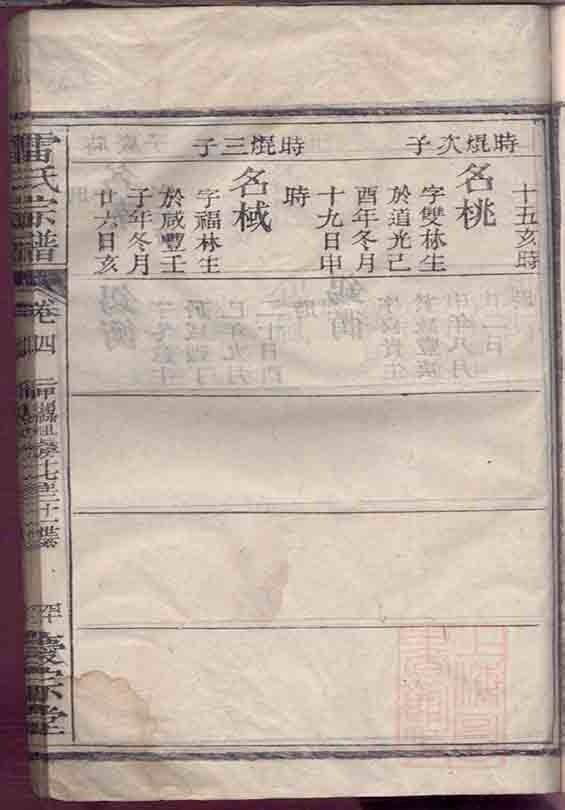 十五亥時
時焜次子
名桃
字雙林生
於道光己
酉年冬月
十九日申
時
時焜三子
名棫
字福林生
於咸豐壬
子年冬月
廿六日亥
雷氏宗譜
卷四